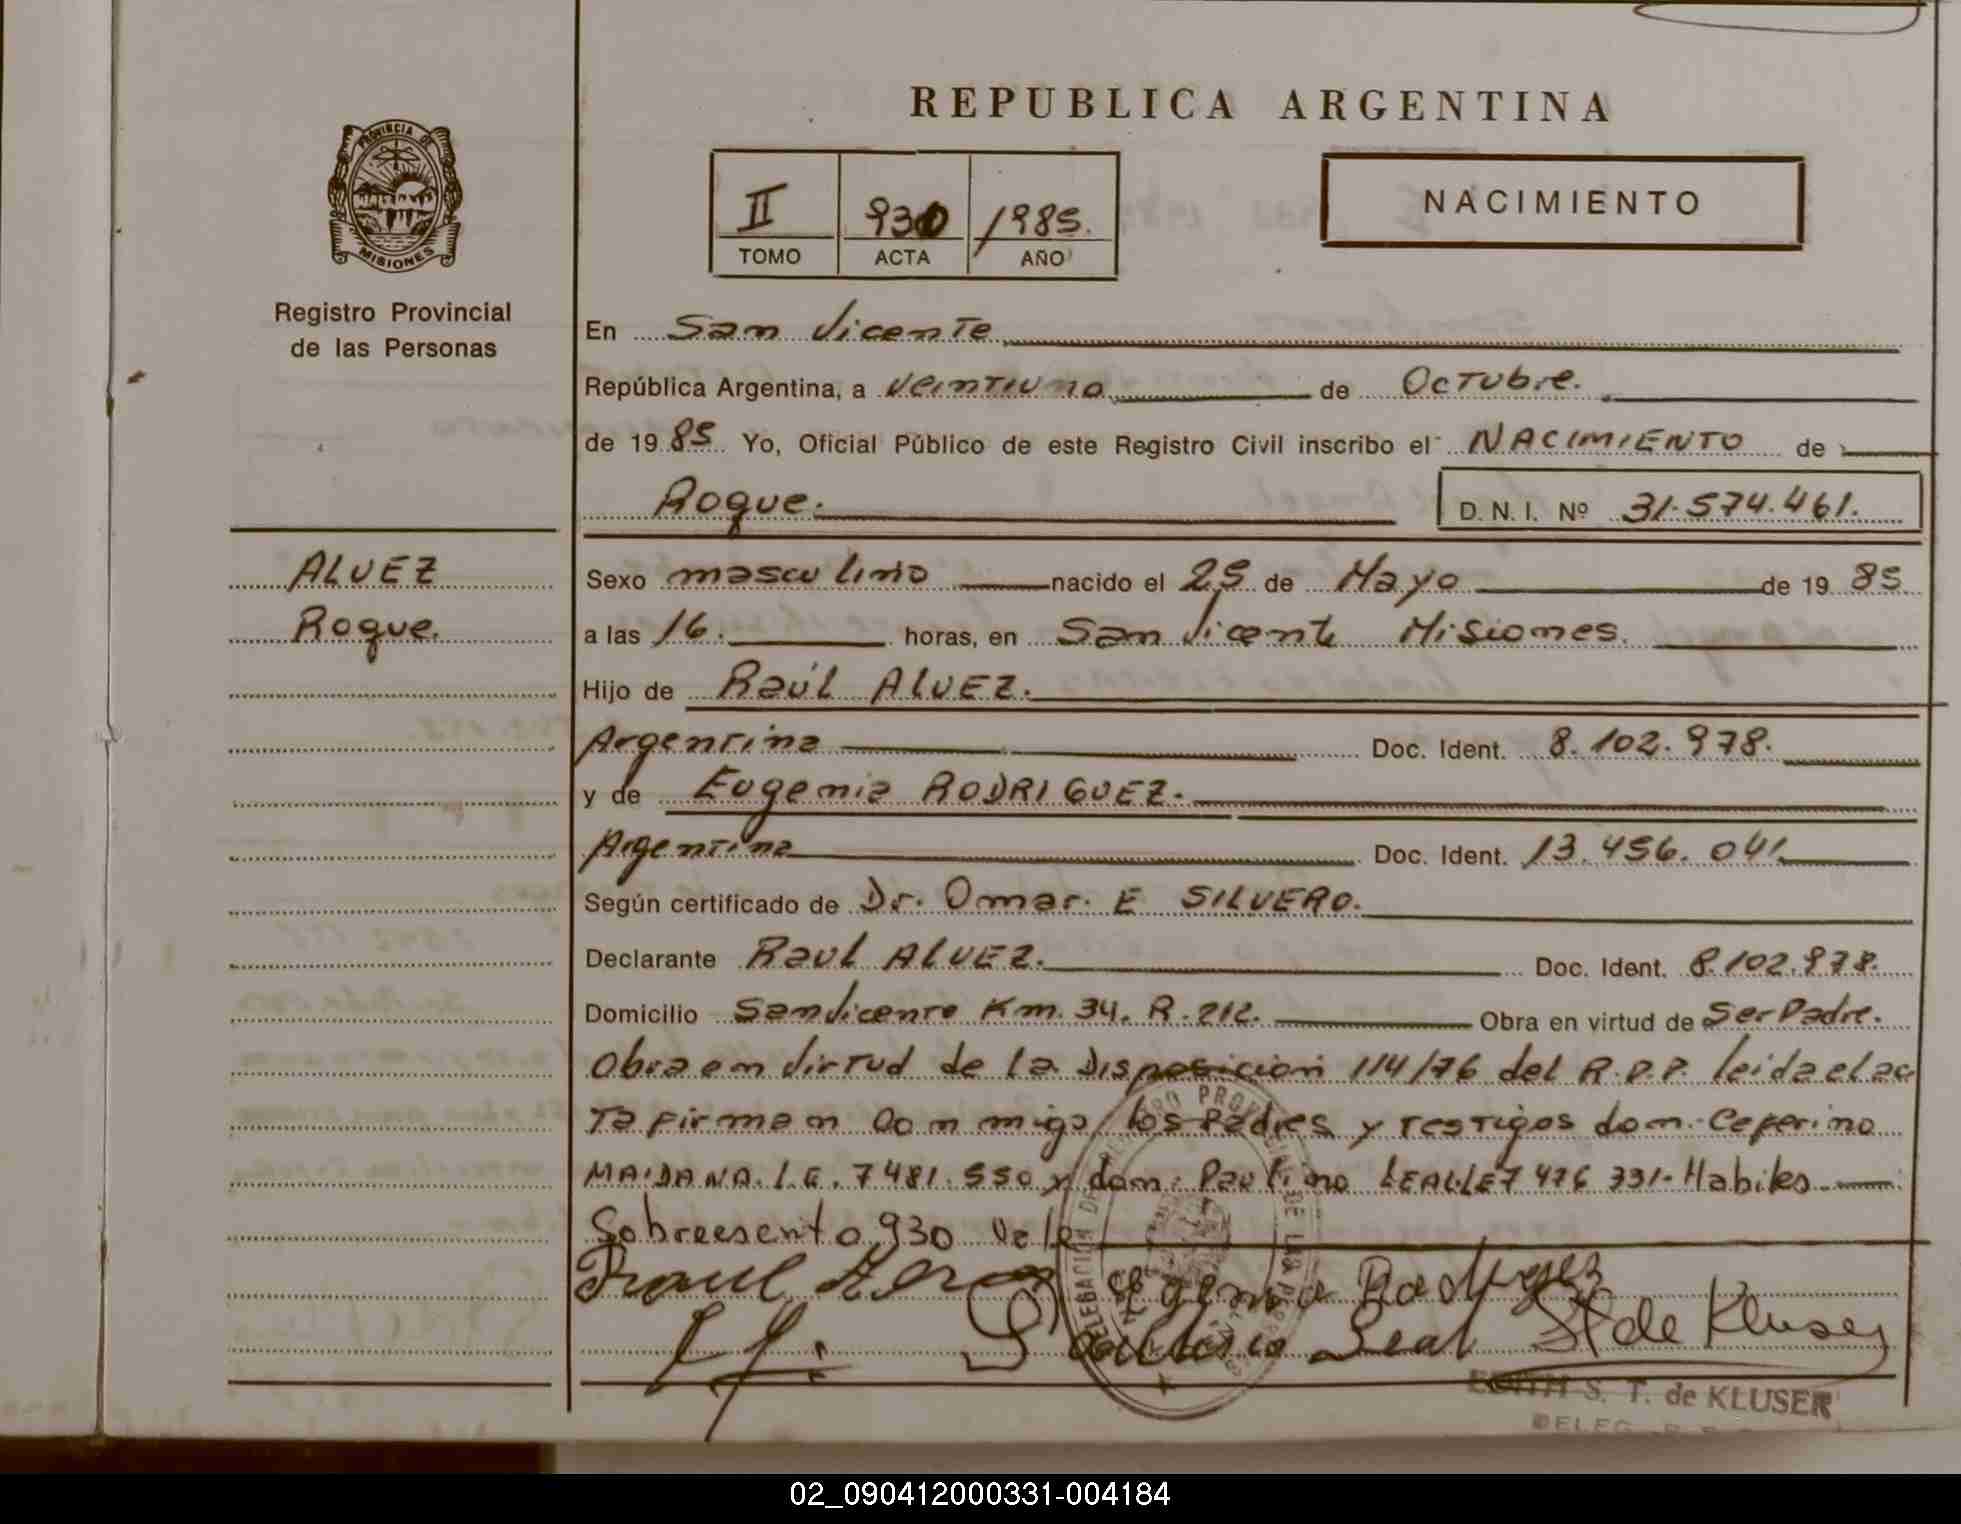 REPUBLICA ARGENTINA
PROVINCIA DE
MISIONES
Registro Provincial
de las Personas
II 930 1985.
TOMO ACTA AÑO
NACIMIENTO
En San Vicente
República Argentina, a veintiuno de Octubre.
de 1985 Yo, Oficial Público de este Registro Civil inscribo el NACIMIENTO de
Roque. D. N. I. Nº 31.574.461.
ALVEZ
Roque.
Sexo masculino nacido el 25 de Mayo de 1985
a las 16. horas, en San Vicente Misiones.
Hijo de Raúl ALVEZ.
Argentina Doc. Ident. 8.102.978.
y de Eugenia RODRIGUEZ.
Argentina Doc. Ident. 13.456.041
Según certificado de Dr. Omar. E SILVERO.
Declarante Raul ALVEZ. Doc. Ident. 8.102.978.
Domicilio San Vicente Km. 34. R. 212. Obra en virtud de Ser Padre.
Obra en virtud de la Disposicion 114/76 del R.P.P. leida el ac
ta firman Con migo los Padres y testigos don. Ceferino
MAIDANA. L.E. 7481.550 y don: Paulino LEAL LE 7 476 331. Habiles
Sobreescrito 930 Vale
Raul
Eugenia Rodriguez
Leal
de Kluser
EDITH S. T. de KLUSER
DELEG.
02_090412000331-004184